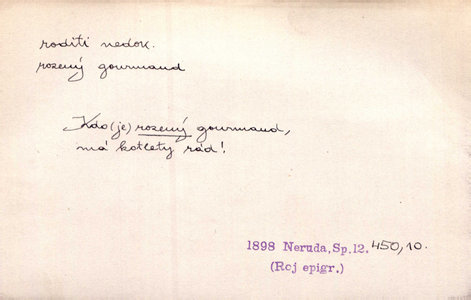 roditi nedok.
rozený gourmand
Kdo (je) rozený gourmand,
má kotlety rád!
1898 Neruda, Sp.12. 450,10.
(Roj epigr.)